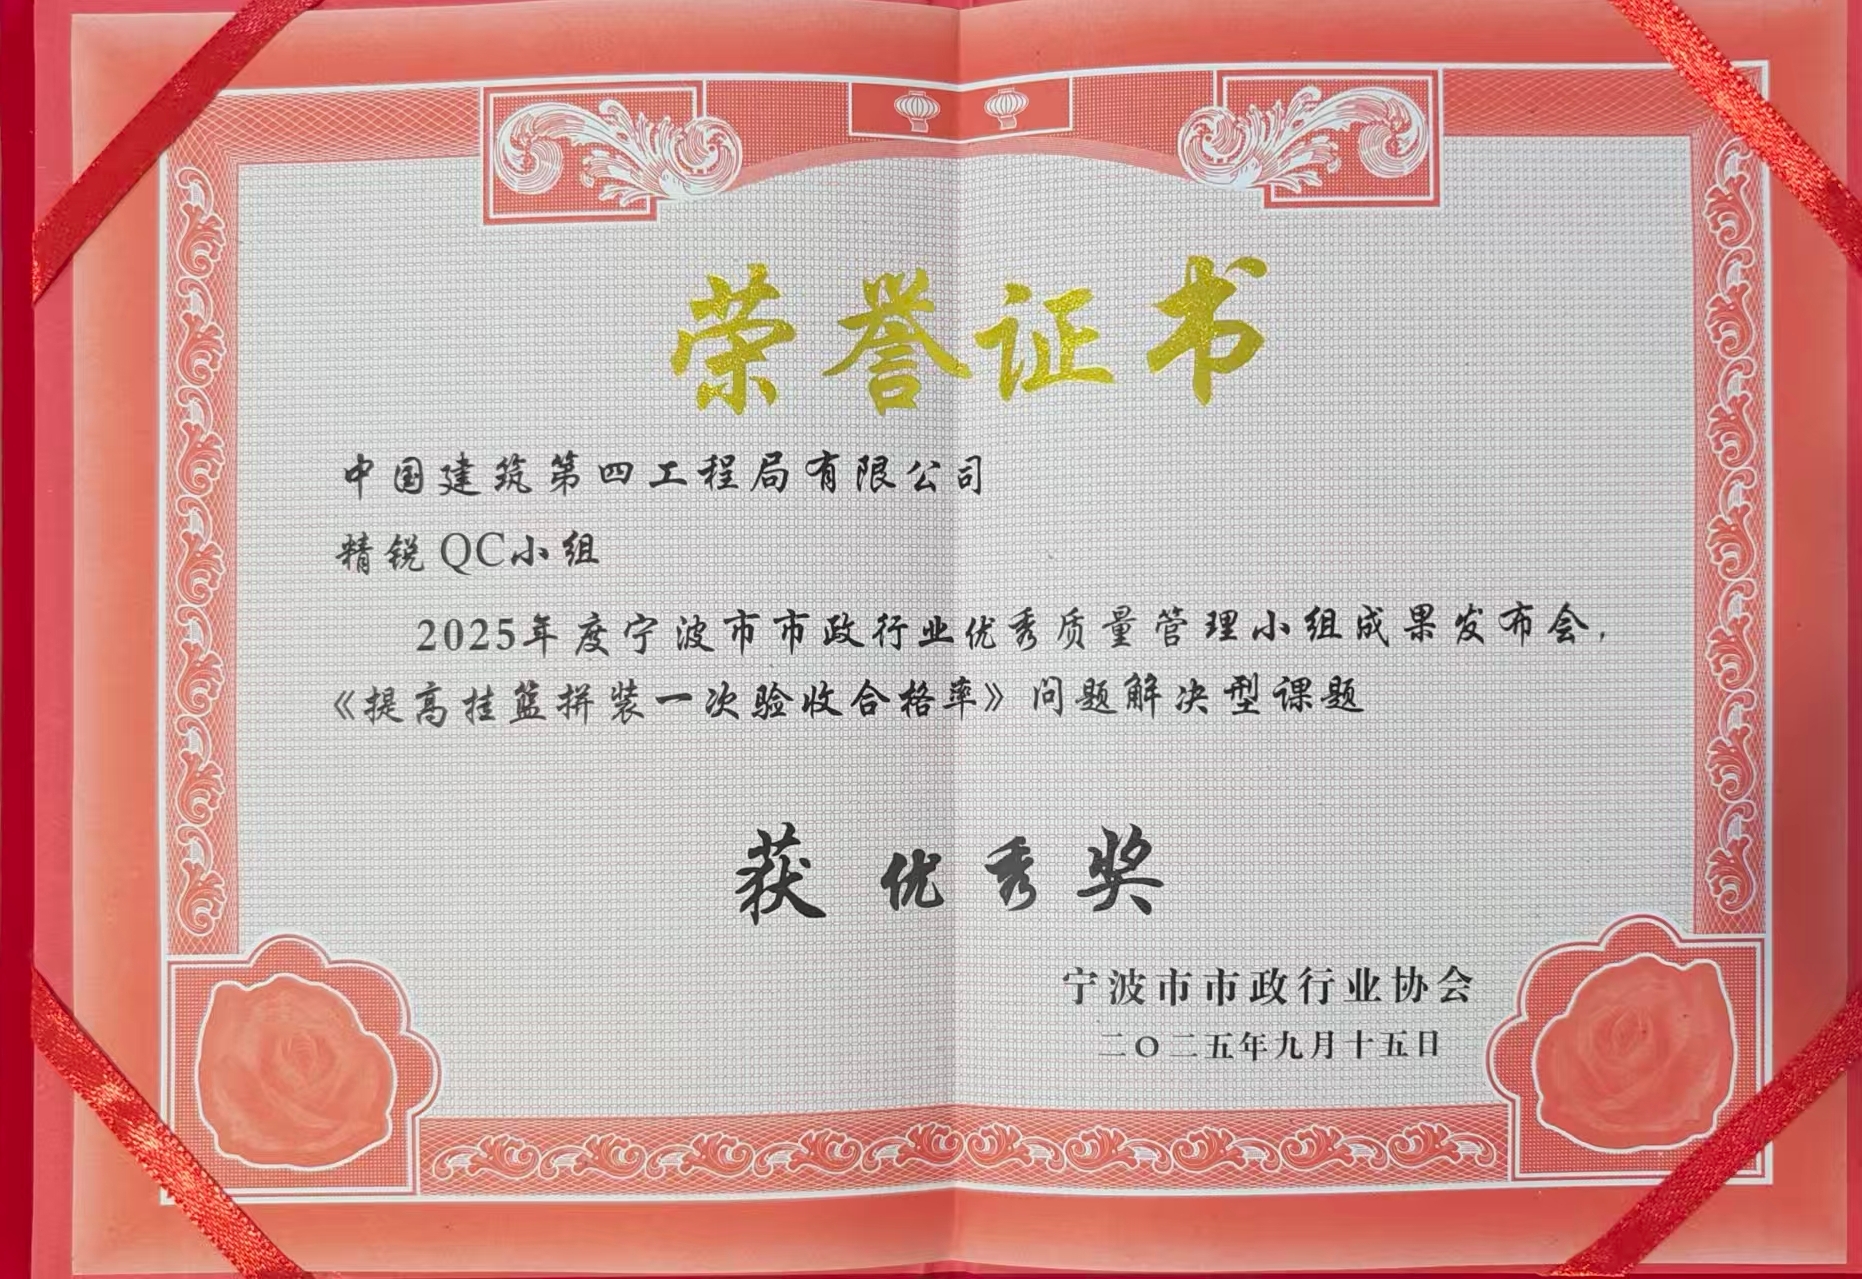 荣誉证书
中国建筑第四工程局有限公司
精锐QC小组
2025年度宁波市市政行业优秀质量管理小组成果发布会，
《提高挂篮拼装一次验收合格率》问题解决型课题
获优秀奖
宁波市市政行业协会
二〇二五年九月十五日